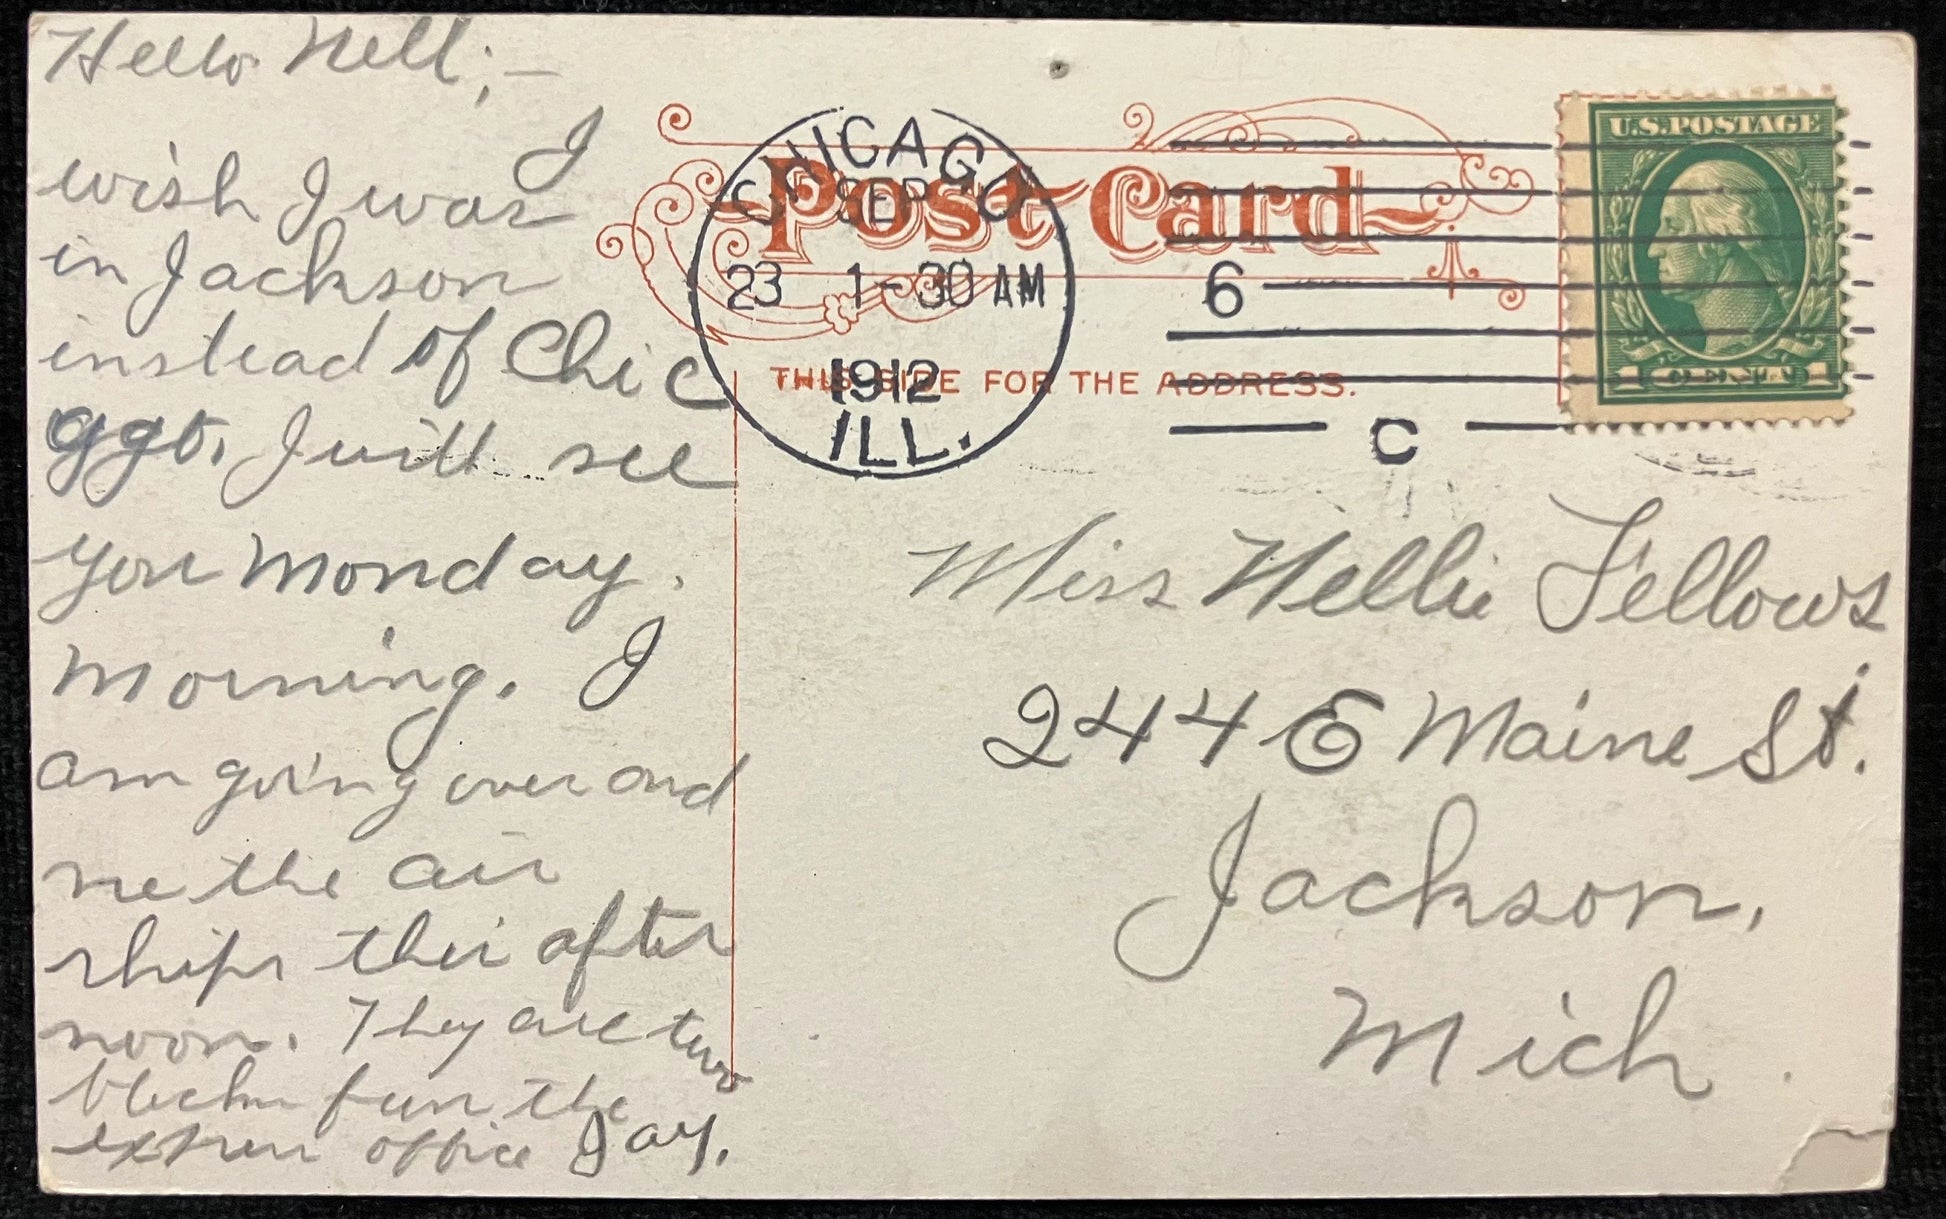 Hello Nell;—
I
wish I was
in Jackson
instead of Chic
ago. I will see
you Monday.
morning. I
am going over and
see the air
ships this after
noon. They are two
blocks from the
express office Jay.
CHICAGO
SEP
23 1-30 AM
1912
ILL.
6
C
Post Card
THIS SIDE FOR THE ADDRESS.
U.S. POSTAGE
1 1
Miss Nellie Fellows
244 E Maine St.
Jackson,
Mich.